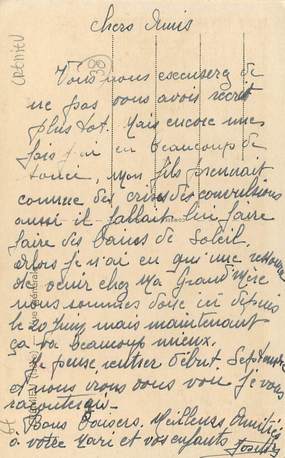 Chers Amis
CREMIEU
38
Vous nous excuserez de
ne pas vous avois récrit
plus tot. Mais encore une
fois j'ai eu beaucoup de
soucie, Mon fils prennait
comme des crises de convulsions
aussi il fallait lui faire
faire des bains de Soleil.
alors je n'ai eu qu'une ressource
de venir chez Ma Grand'Mère
nous sommes donc ici depuis
le 20 Juin mais maintenant
ça va beaucoup mieux.
Je pense rentrer début Septembre
et nous irons vous voir je vous
raconterai.
Bons Baisers. Meilleures Amitiés
à votre Mari et vos enfants